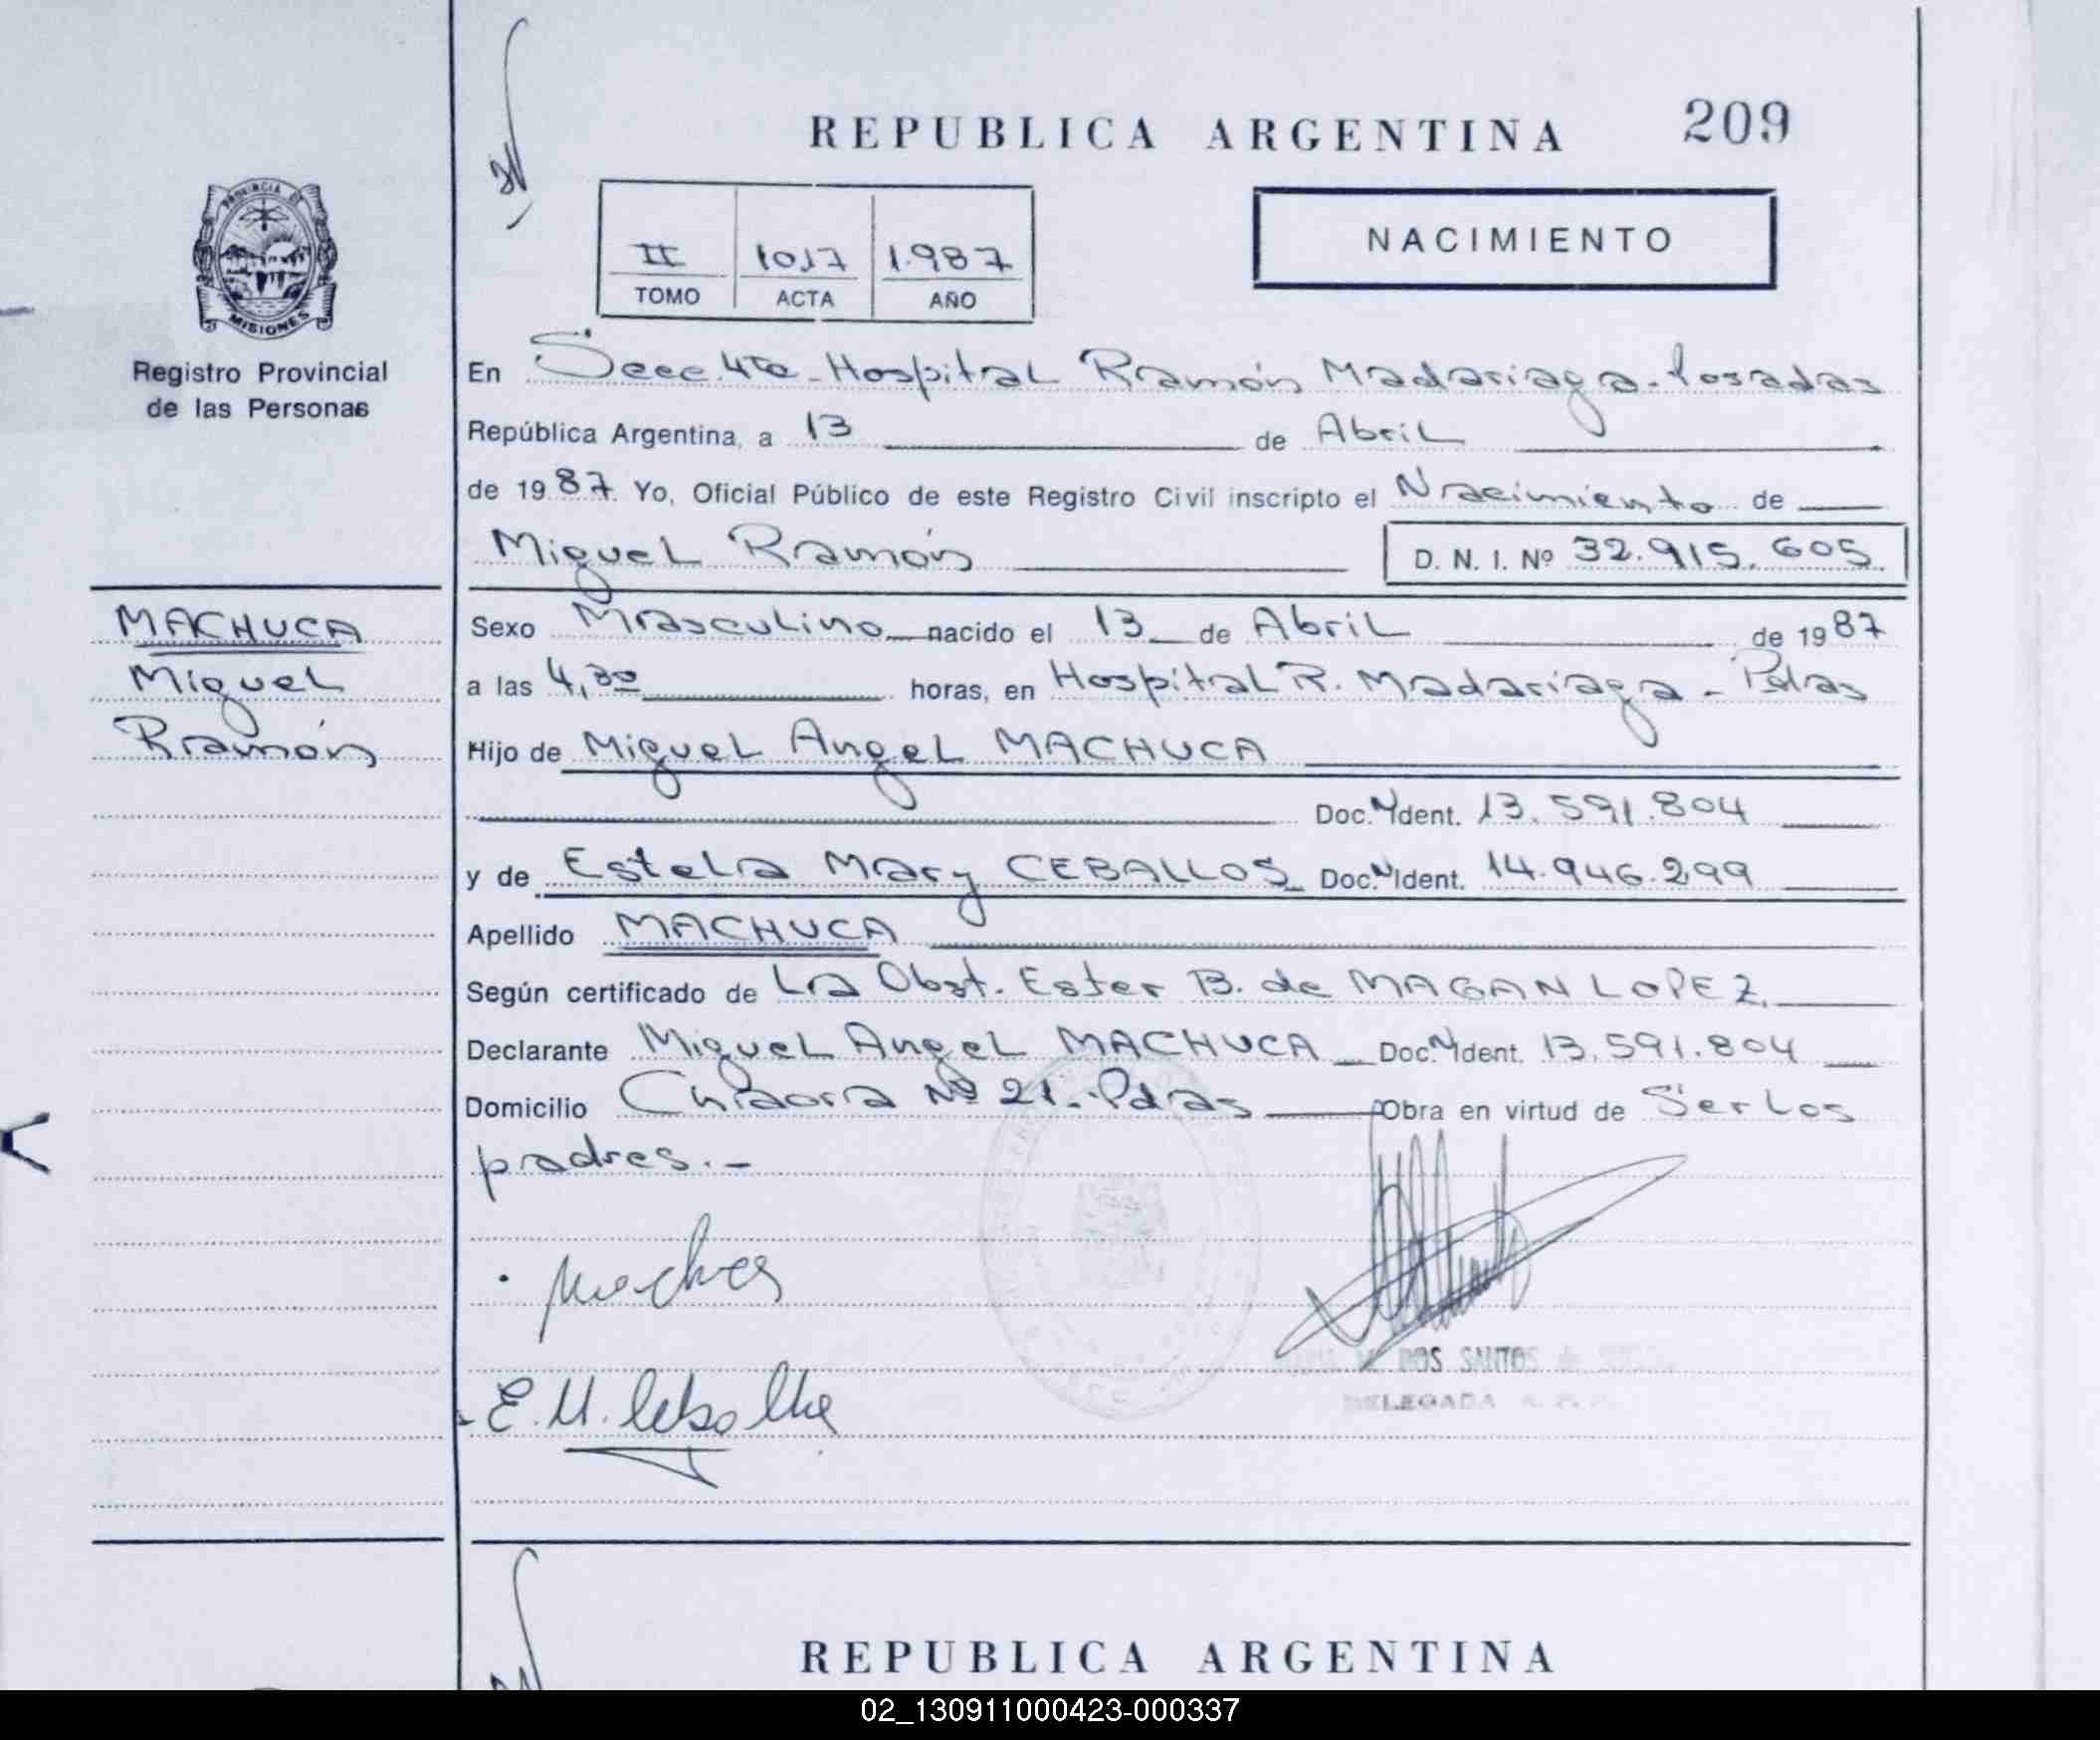 REPUBLICA ARGENTINA 209
II 1017 1.987
TOMO ACTA AÑO
NACIMIENTO
PROVINCIA DE
MISIONES
Registro Provincial
de las Personas
En Secc. 4ta - Hospital Ramón Madariaga - Posadas
República Argentina, a 13 de Abril
de 1987 Yo, Oficial Público de este Registro Civil inscripto el Nacimiento de
Miguel Ramón D. N. I. Nº 32.915.605
MACHUCA
Miguel
Ramón
Sexo Masculino nacido el 13 de Abril de 1987
a las 4,30 horas, en Hospital R. Madariaga - Pdas
Hijo de Miguel Angel MACHUCA
Doc. N Ident. 13.591.804
y de Estela Mary CEBALLOS Doc. N Ident. 14.946.299
Apellido MACHUCA
Según certificado de La Obst. Ester B. de MAGAN LOPEZ.
Declarante Miguel Angel MACHUCA Doc. N Ident. 13.591.804
Domicilio Chacra Nº 21.- Pdas Obra en virtud de Ser Los
padres.-
DOS SANTOS
DELEGADA
REPUBLICA ARGENTINA
02_130911000423-000337